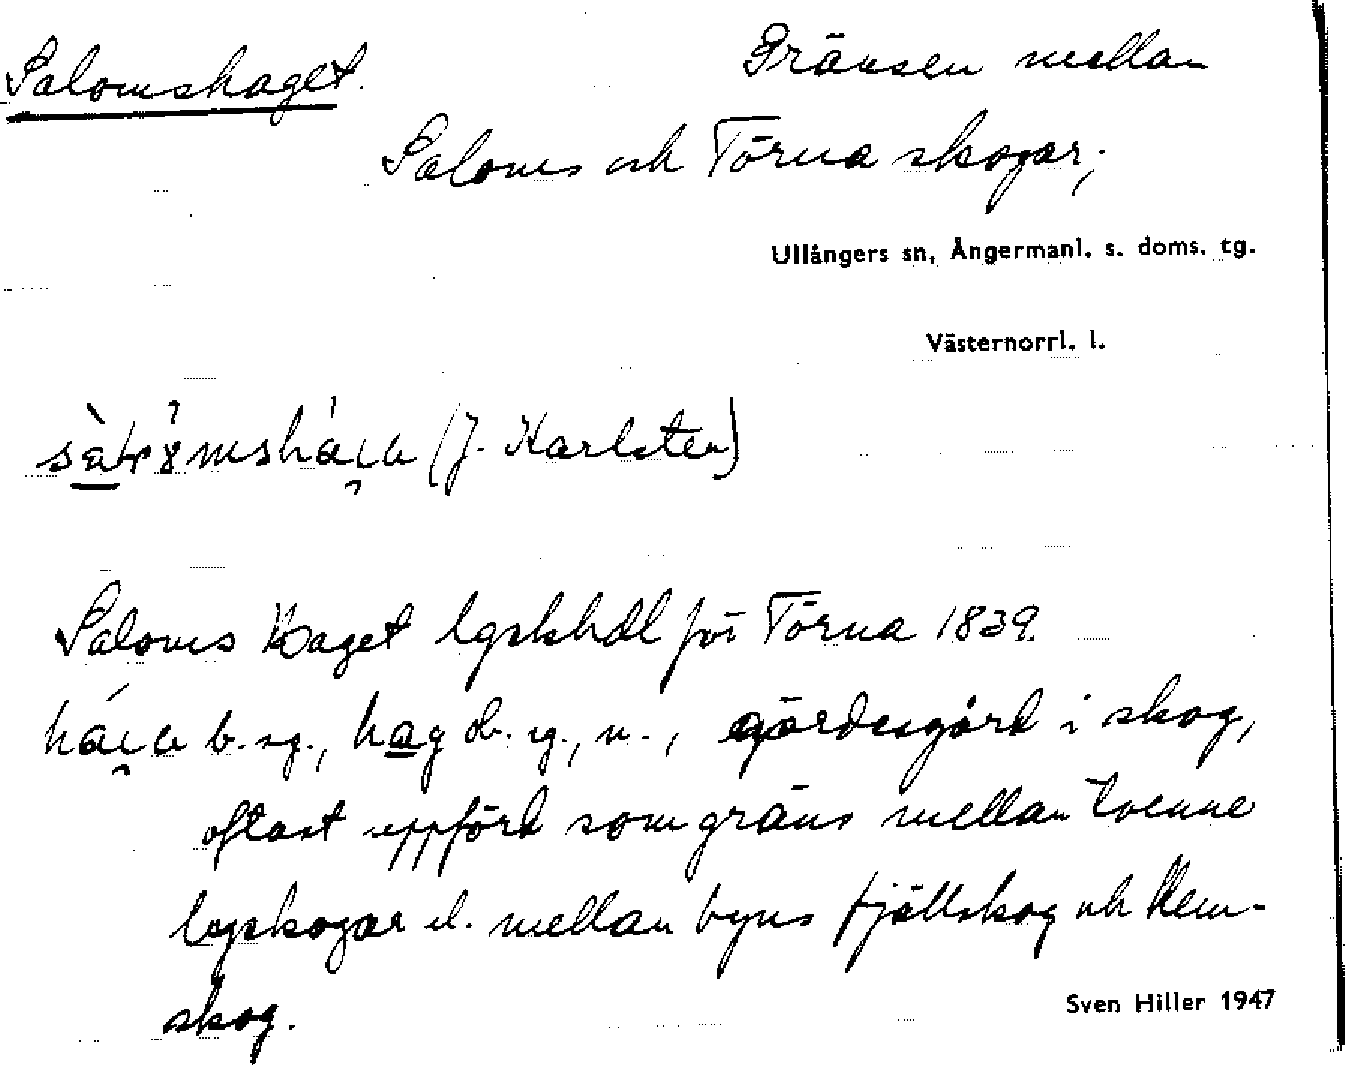 Salomshaget. Gränsen mellan
Saloms och Törna skogar;
Ullångers sn, Ångermanl. s. doms. tg.
Västernorrl. l.
(J. Karlsten)
Saloms Haget lgskhdl för Törna 1839.
b. sg., hag ob. sg., n., gärdesgård i skog,
oftast uppförd som gräns mellan tvenne
byskogar el. mellan byns fjällskog och hem-
skog.
Sven Hiller 1947